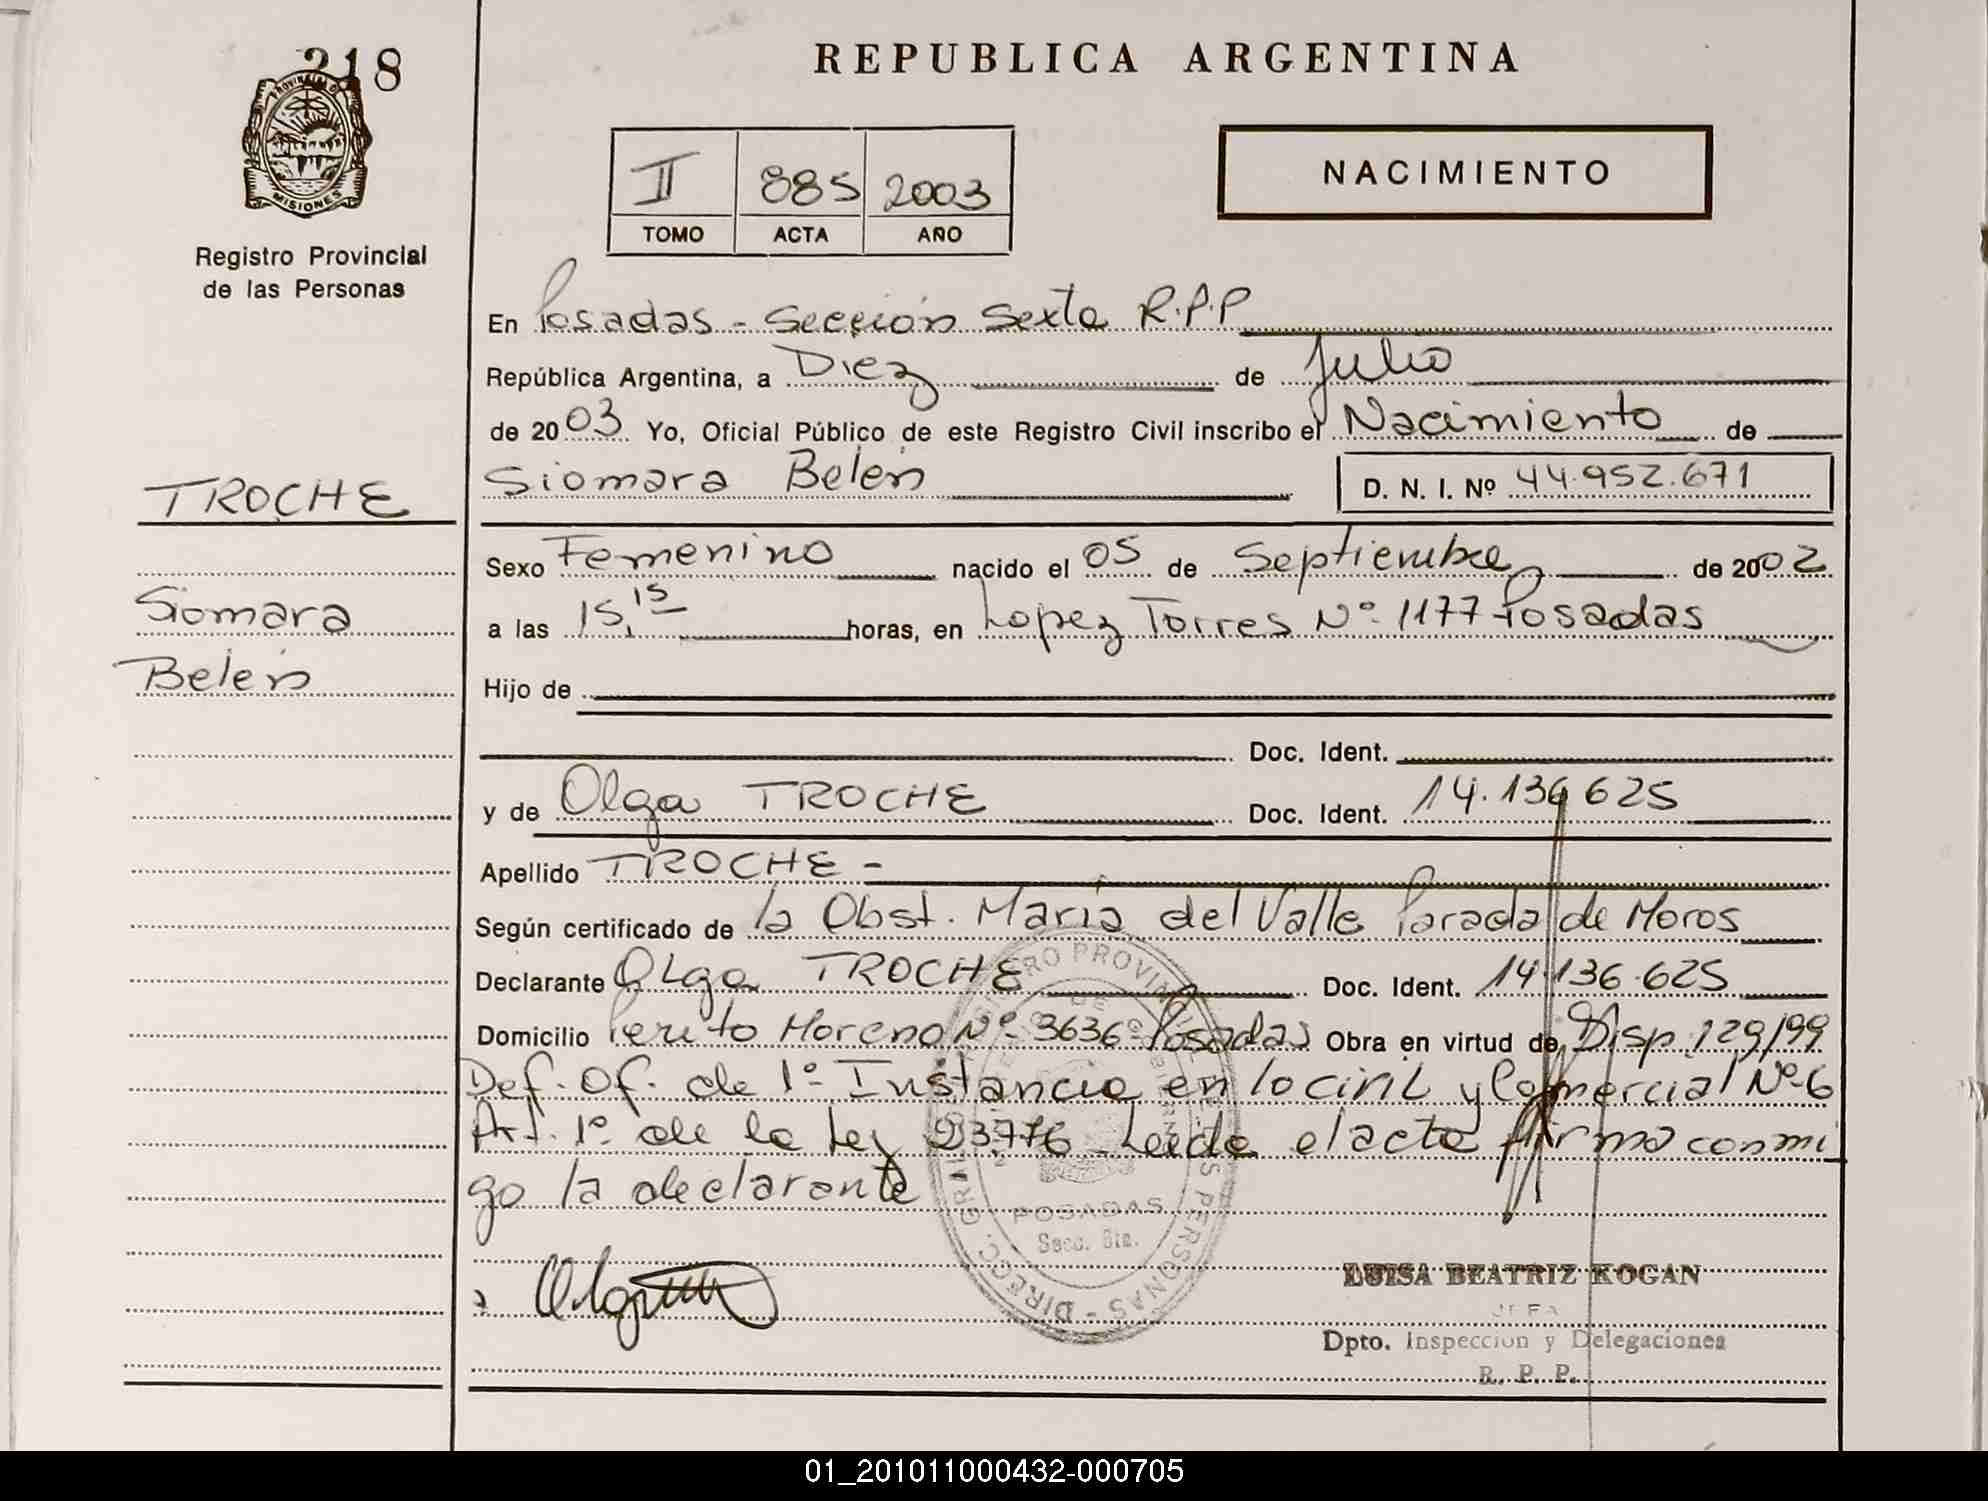 218
REPUBLICA ARGENTINA
PROVINCIA D
MISIONES
Registro Provincial
de las Personas
II 885 2003
TOMO ACTA AÑO
NACIMIENTO
En Posadas - Sección Sexta R.P.P
República Argentina, a Diez de Julio
de 2003 Yo, Oficial Público de este Registro Civil inscribo el Nacimiento de
TROCHE
Siomara Belén D. N. I. Nº 44.952.671
Sexo Femenino nacido el 05 de Septiembre de 2002
Siomara
a las 15,15 horas, en Lopez Torres Nº 1177 Posadas
Belén
Hijo de
Doc. Ident.
y de Olga TROCHE Doc. Ident. 14.136 625
Apellido TROCHE -
Según certificado de la Obst. María del Valle Parada de Moros
Declarante Olga TROCHE Doc. Ident. 14.136.625
Domicilio Perito Moreno Nº 3636 Posadas Obra en virtud de Disp. 129/99
Def. Of. de 1º Instancia en lo civil y Comercial Nº 6
Art. 1º de la Ley 23776 Leida el acta firma conmi
go la declarante
POSADAS
Secc. 6ta.
LUISA BEATRIZ KOGAN
JEFA
Dpto. Inspeccion y Delegaciones
R. P. P.
01_201011000432-000705